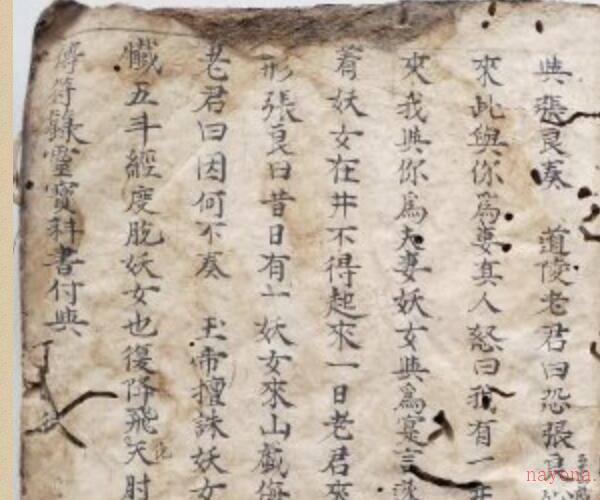 與張良奏 道陵老君曰恐張良
來此與你為妻真人怒曰我有一
來我與你為夫妻妖女與為寔言
着妖女在井不得起來一日老君來
形張良曰昔日有一妖女來山戲侮
老君曰因何不奏 玉帝擅誅妖女
懺五斗經度脫妖女也復降飛天
傳符籙靈寶科書付與
nayona.